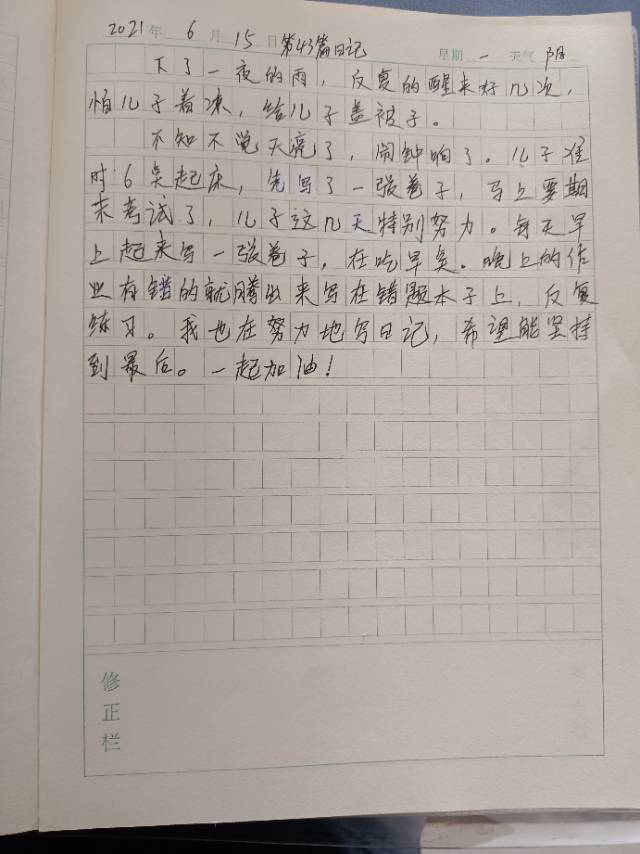 2021年 6月 15日第43篇日记 星期 一 天气 阴
下了一夜的雨，反复的醒来好几次，
怕儿子着凉，给儿子盖被子。
不知不觉天亮了，闹钟响了。儿子准
时6点起床，先写了一张卷子，马上要期
末考试了，儿子这几天特别努力。每天早
上起来写一张卷子，在吃早点。晚上的作
业有错的就腾出来写在错题本子上，反复
练习。我也在努力地写日记，希望能坚持
到最后。一起加油！
修
正
栏